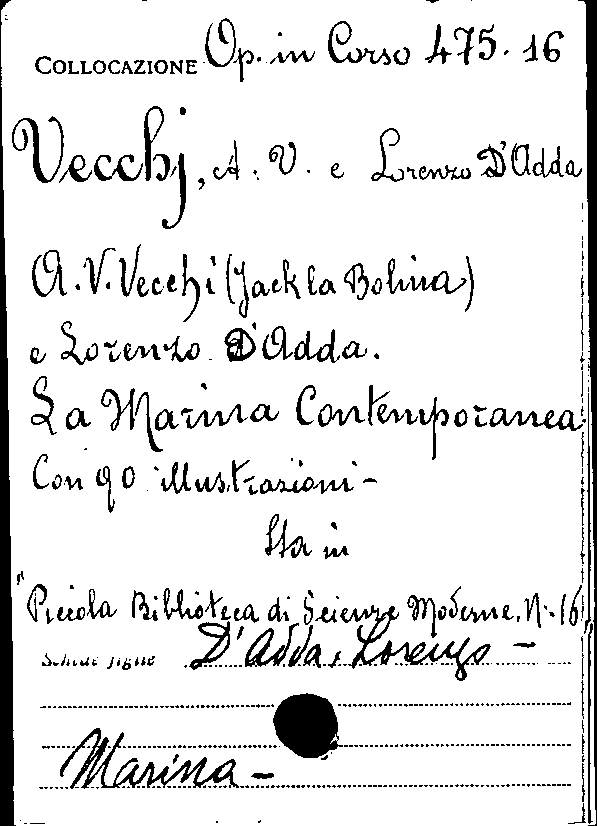 COLLOCAZIONE Op. in Corso 475. 16
Vecchj, A. V. e Lorenzo D'Adda
A. V. Vecchi (Jack la Bolina)
e Lorenzo D'Adda.
La Marina Contemporanea
Con 90 illustrazioni -
Sta in
"Piccola Biblioteca di Scienze Moderne, N. 16"
Schede figlie D'Adda, Lorenzo -
Marina -